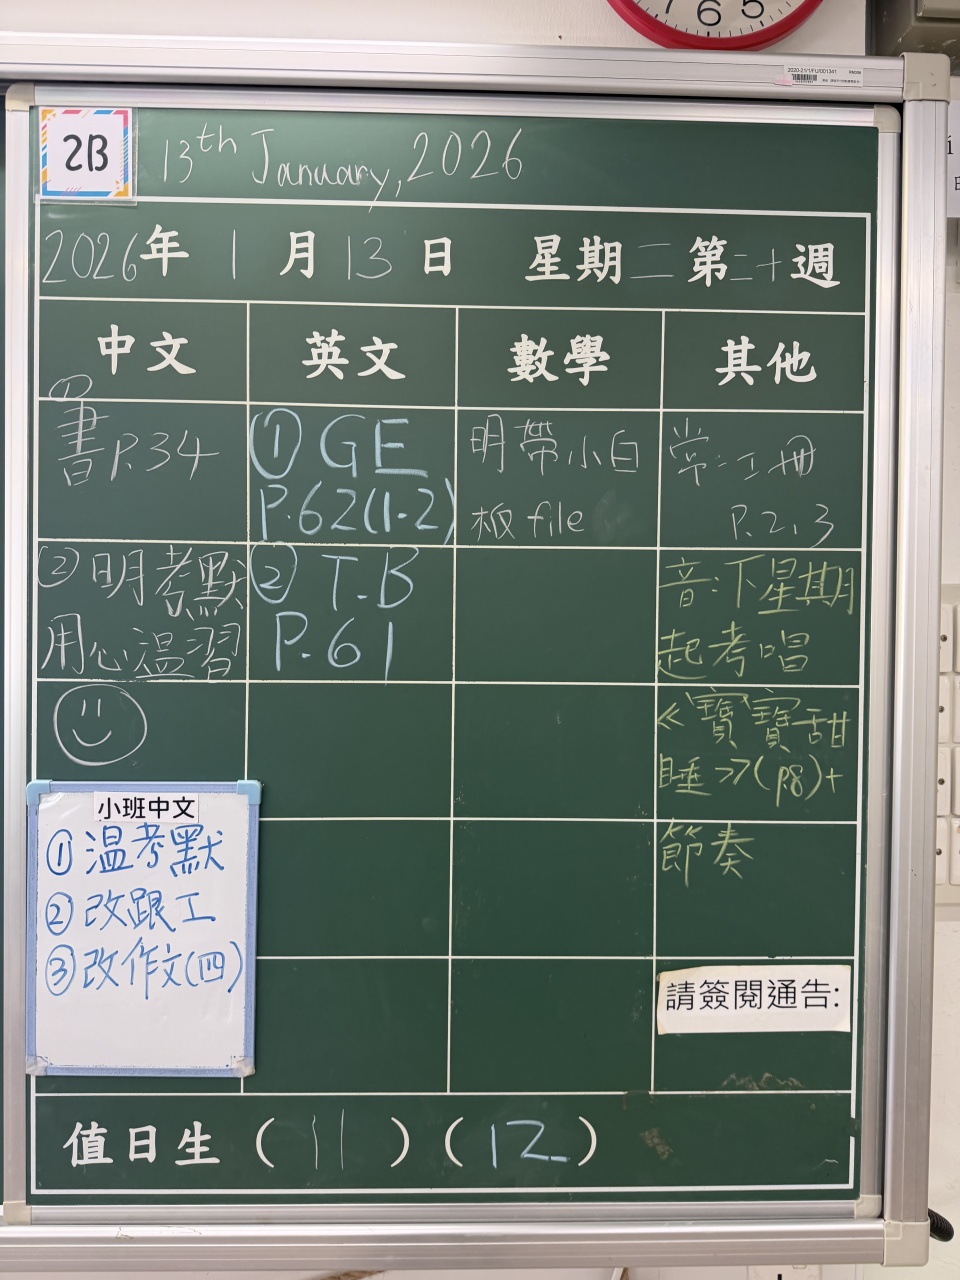 7 6 5
2020-21/1/FU/001341
2B
13th January, 2026
2026年 1 月 13 日 星期二 第二十週
中文
英文
數學
其他
① 書 P.34
① GE
P.62(1-2)
明帶小白
板 file
常:工冊
P.2,3
② 明考默
用心溫習
② T.B
P.61
音:下星期
起考唱
《寶寶甜
睡》(p8)+
節奏
小班中文
① 溫考默
② 改跟工
③ 改作文(四)
請簽閱通告:
值日生 ( 11 ) ( 12 )